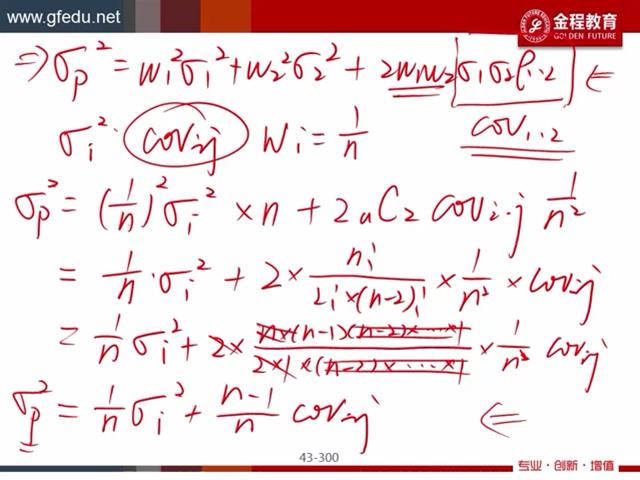 www.gfedu.net
金程教育
GOLDEN FUTURE
⇒ σp² = w₁²σ₁² + w₂²σ₂² + 2w₁w₂ σ₁σ₂ρ₁.₂ ⇐
cov₁.₂
σi². covij wi = 1/n
σp² = (1/n)² σi² × n + 2 nC₂ covi.j 1/n²
= 1/n · σi² + 2 × n!/(2! × (n-2)!) × 1/n² × covij
= 1/n σi² + 2 × (n×(n-1)(n-2)×⋯×1)/(2×1×(n-2)×⋯×1) × 1/n² covij
σp² = 1/n σi² + (n-1)/n covij ⇐
43-300
专业·创新·增值